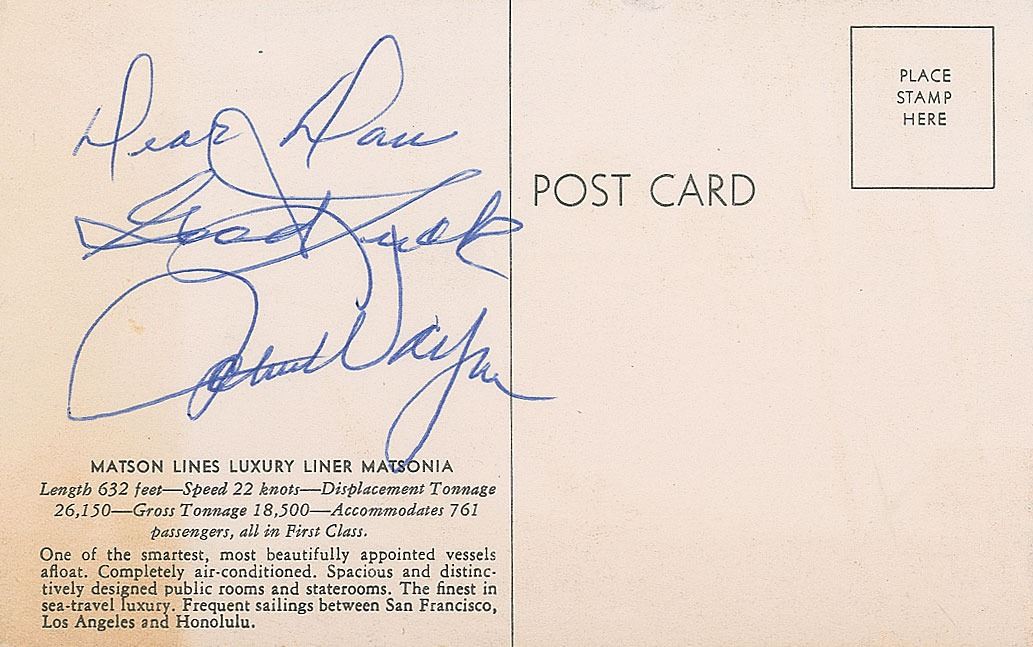 Dear Dan
Good Luck
John Wayne
MATSON LINES LUXURY LINER MATSONIA
Length 632 feet—Speed 22 knots—Displacement Tonnage
26,150—Gross Tonnage 18,500—Accommodates 761
passengers, all in First Class.
One of the smartest, most beautifully appointed vessels
afloat. Completely air-conditioned. Spacious and distinc-
tively designed public rooms and staterooms. The finest in
sea-travel luxury. Frequent sailings between San Francisco,
Los Angeles and Honolulu.
POST CARD
PLACE
STAMP
HERE